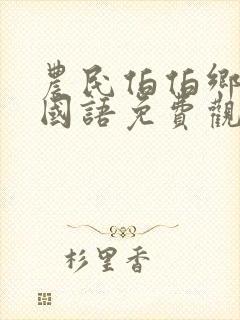 農民伯伯鄉
國語免費觀
杉里香